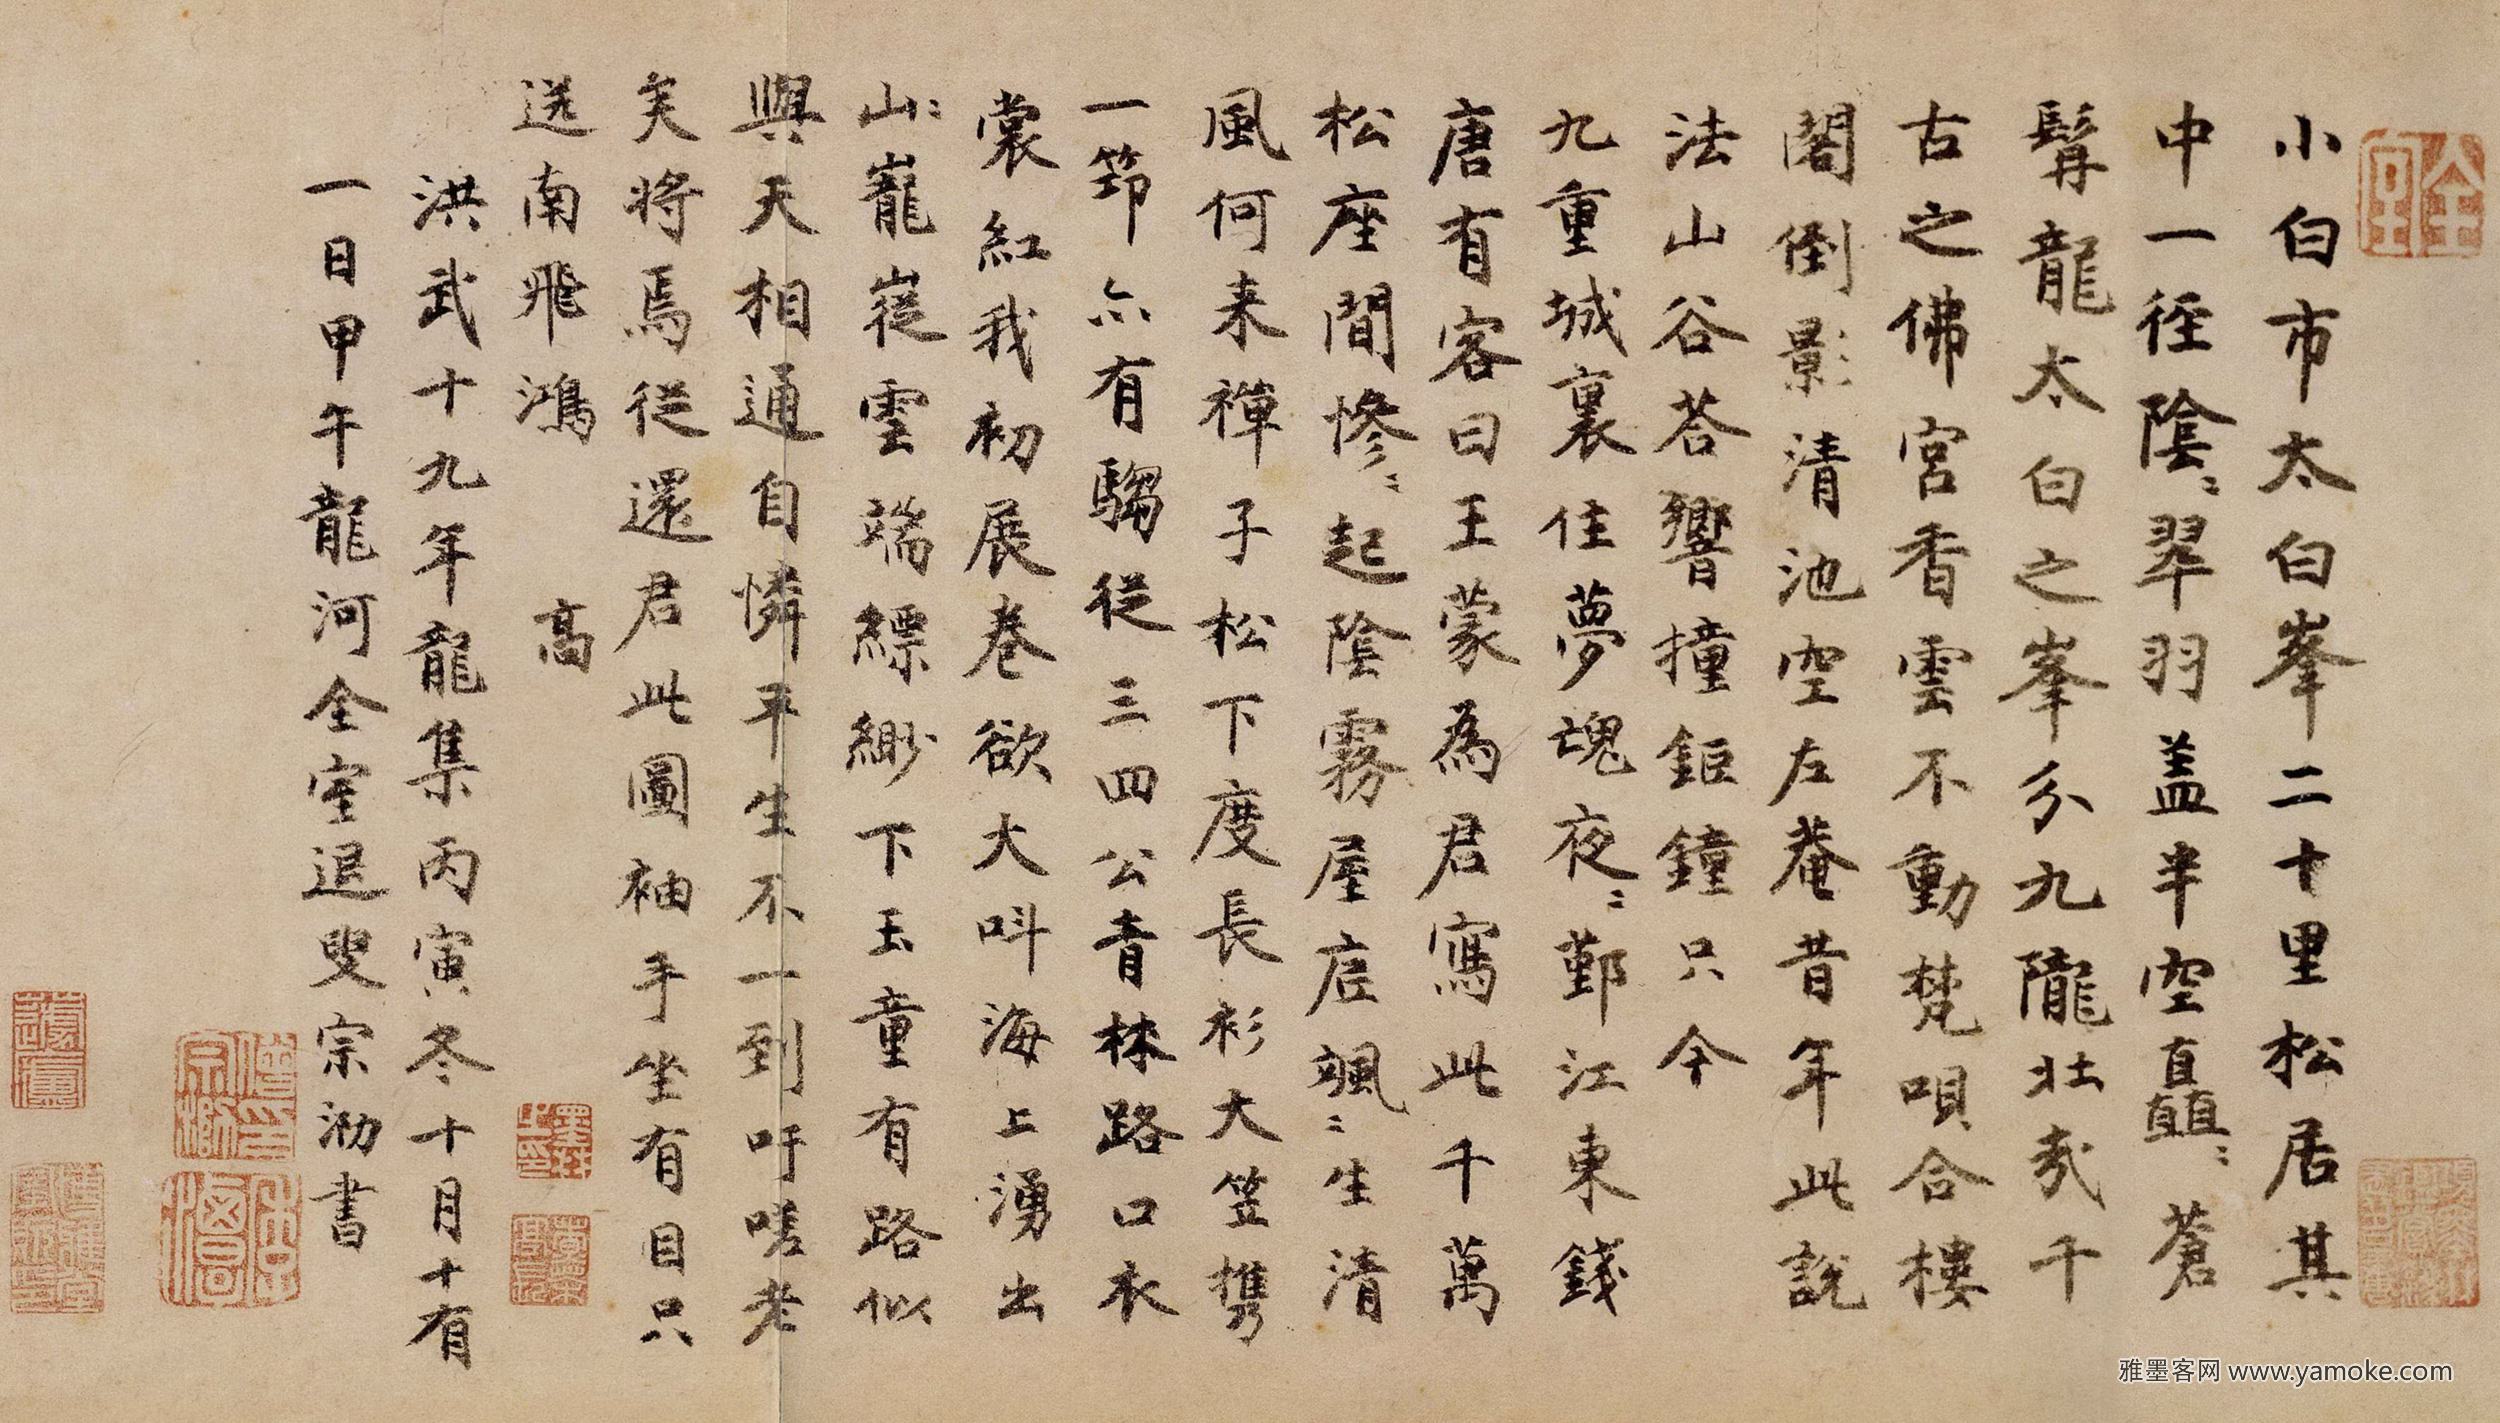 小白市太白峯二十里松居其
中一徑陰〻翠羽蓋半空直矗〻蒼
髯龍太白之峯分九隴壯哉千
古之佛宮香雲不動梵唄合樓
閣倒影清池空左菴昔年此說
法山谷荅響撞鉅鐘只今
九重城裏住夢魂夜〻鄞江東錢
唐有客曰王蒙為君寫此千萬
松座間慘〻起陰霧屋底颯〻生清
風何来禪子松下度長衫大笠携
一笻亦有騶從三四公青林路口衣
裳紅我初展卷欲大叫海上湧出
山〻巃嵷雲端縹緲下玉童有路似
與天相通自憐平生不一到吁嗟老
矣將焉從還君此圖袖手坐有目只
送南飛鴻 高
洪武十九年龍集丙寅冬十月十有
一日甲午龍河全室退叟宗泐書
全室
宗泐
雅墨客网 www.yamoke.com